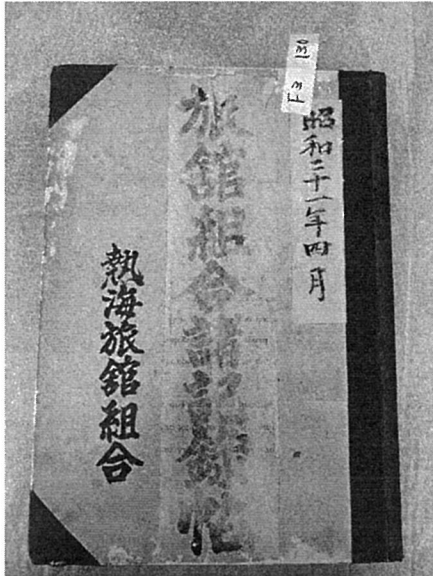 昭和二十一年四月
旅館組合諸記録
熱海旅館組合